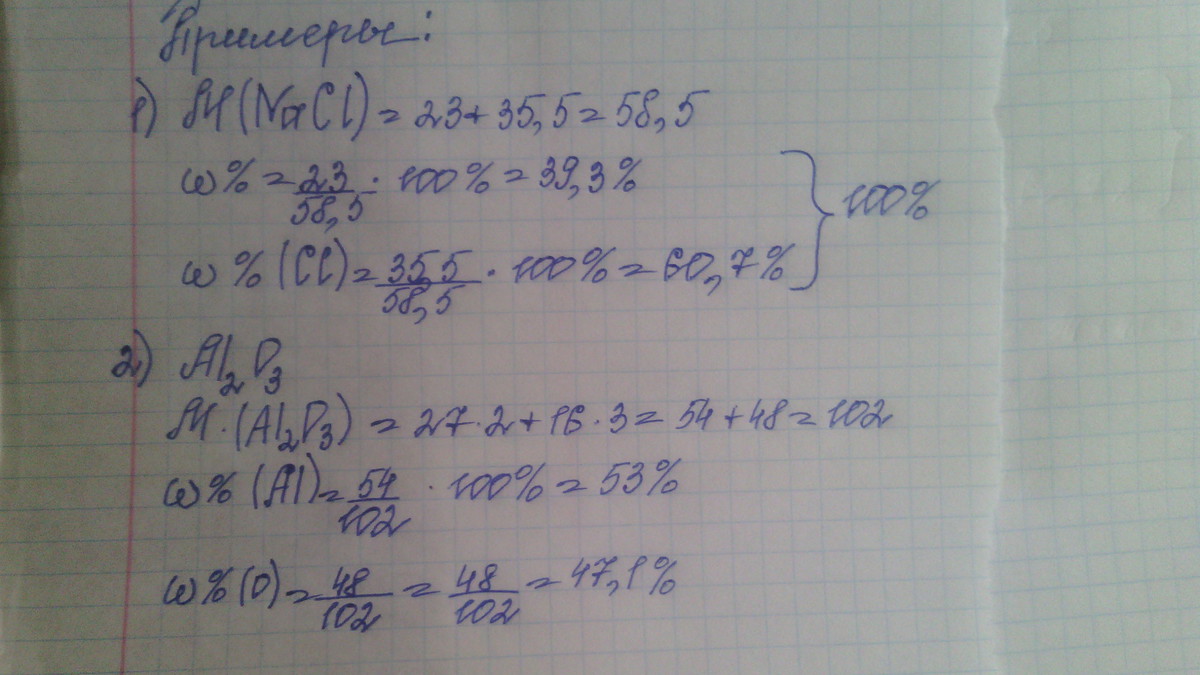 Примеры:
1) M(NaCl) = 23 + 35,5 = 58,5
ω% = 23/58,5 · 100% = 39,3%
ω% (Cl) = 35,5/58,5 · 100% = 60,7% } 100%
2) Al₂O₃
M·(Al₂O₃) = 27·2 + 16·3 = 54 + 48 = 102
ω% (Al) = 54/102 · 100% = 53%
ω% (O) = 48/102 = 48/102 = 47,1%